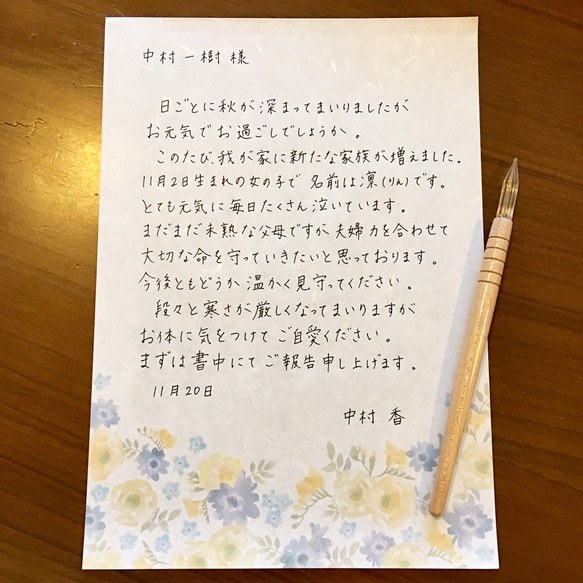 中村一樹様
日ごとに秋が深まってまいりましたが
お元気でお過ごしでしょうか。
このたび我が家に新たな家族が増えました。
11月2日生まれの女の子で 名前は凛(りん)です。
とても元気に毎日たくさん泣いています。
まだまだ未熟な父母ですが 夫婦力を合わせて
大切な命を守っていきたいと思っております。
今後ともどうか温かく見守ってください。
段々と寒さが厳しくなってまいりますが
お体に気をつけてご自愛ください。
まずは書中にてご報告申し上げます。
11月20日
中村 香